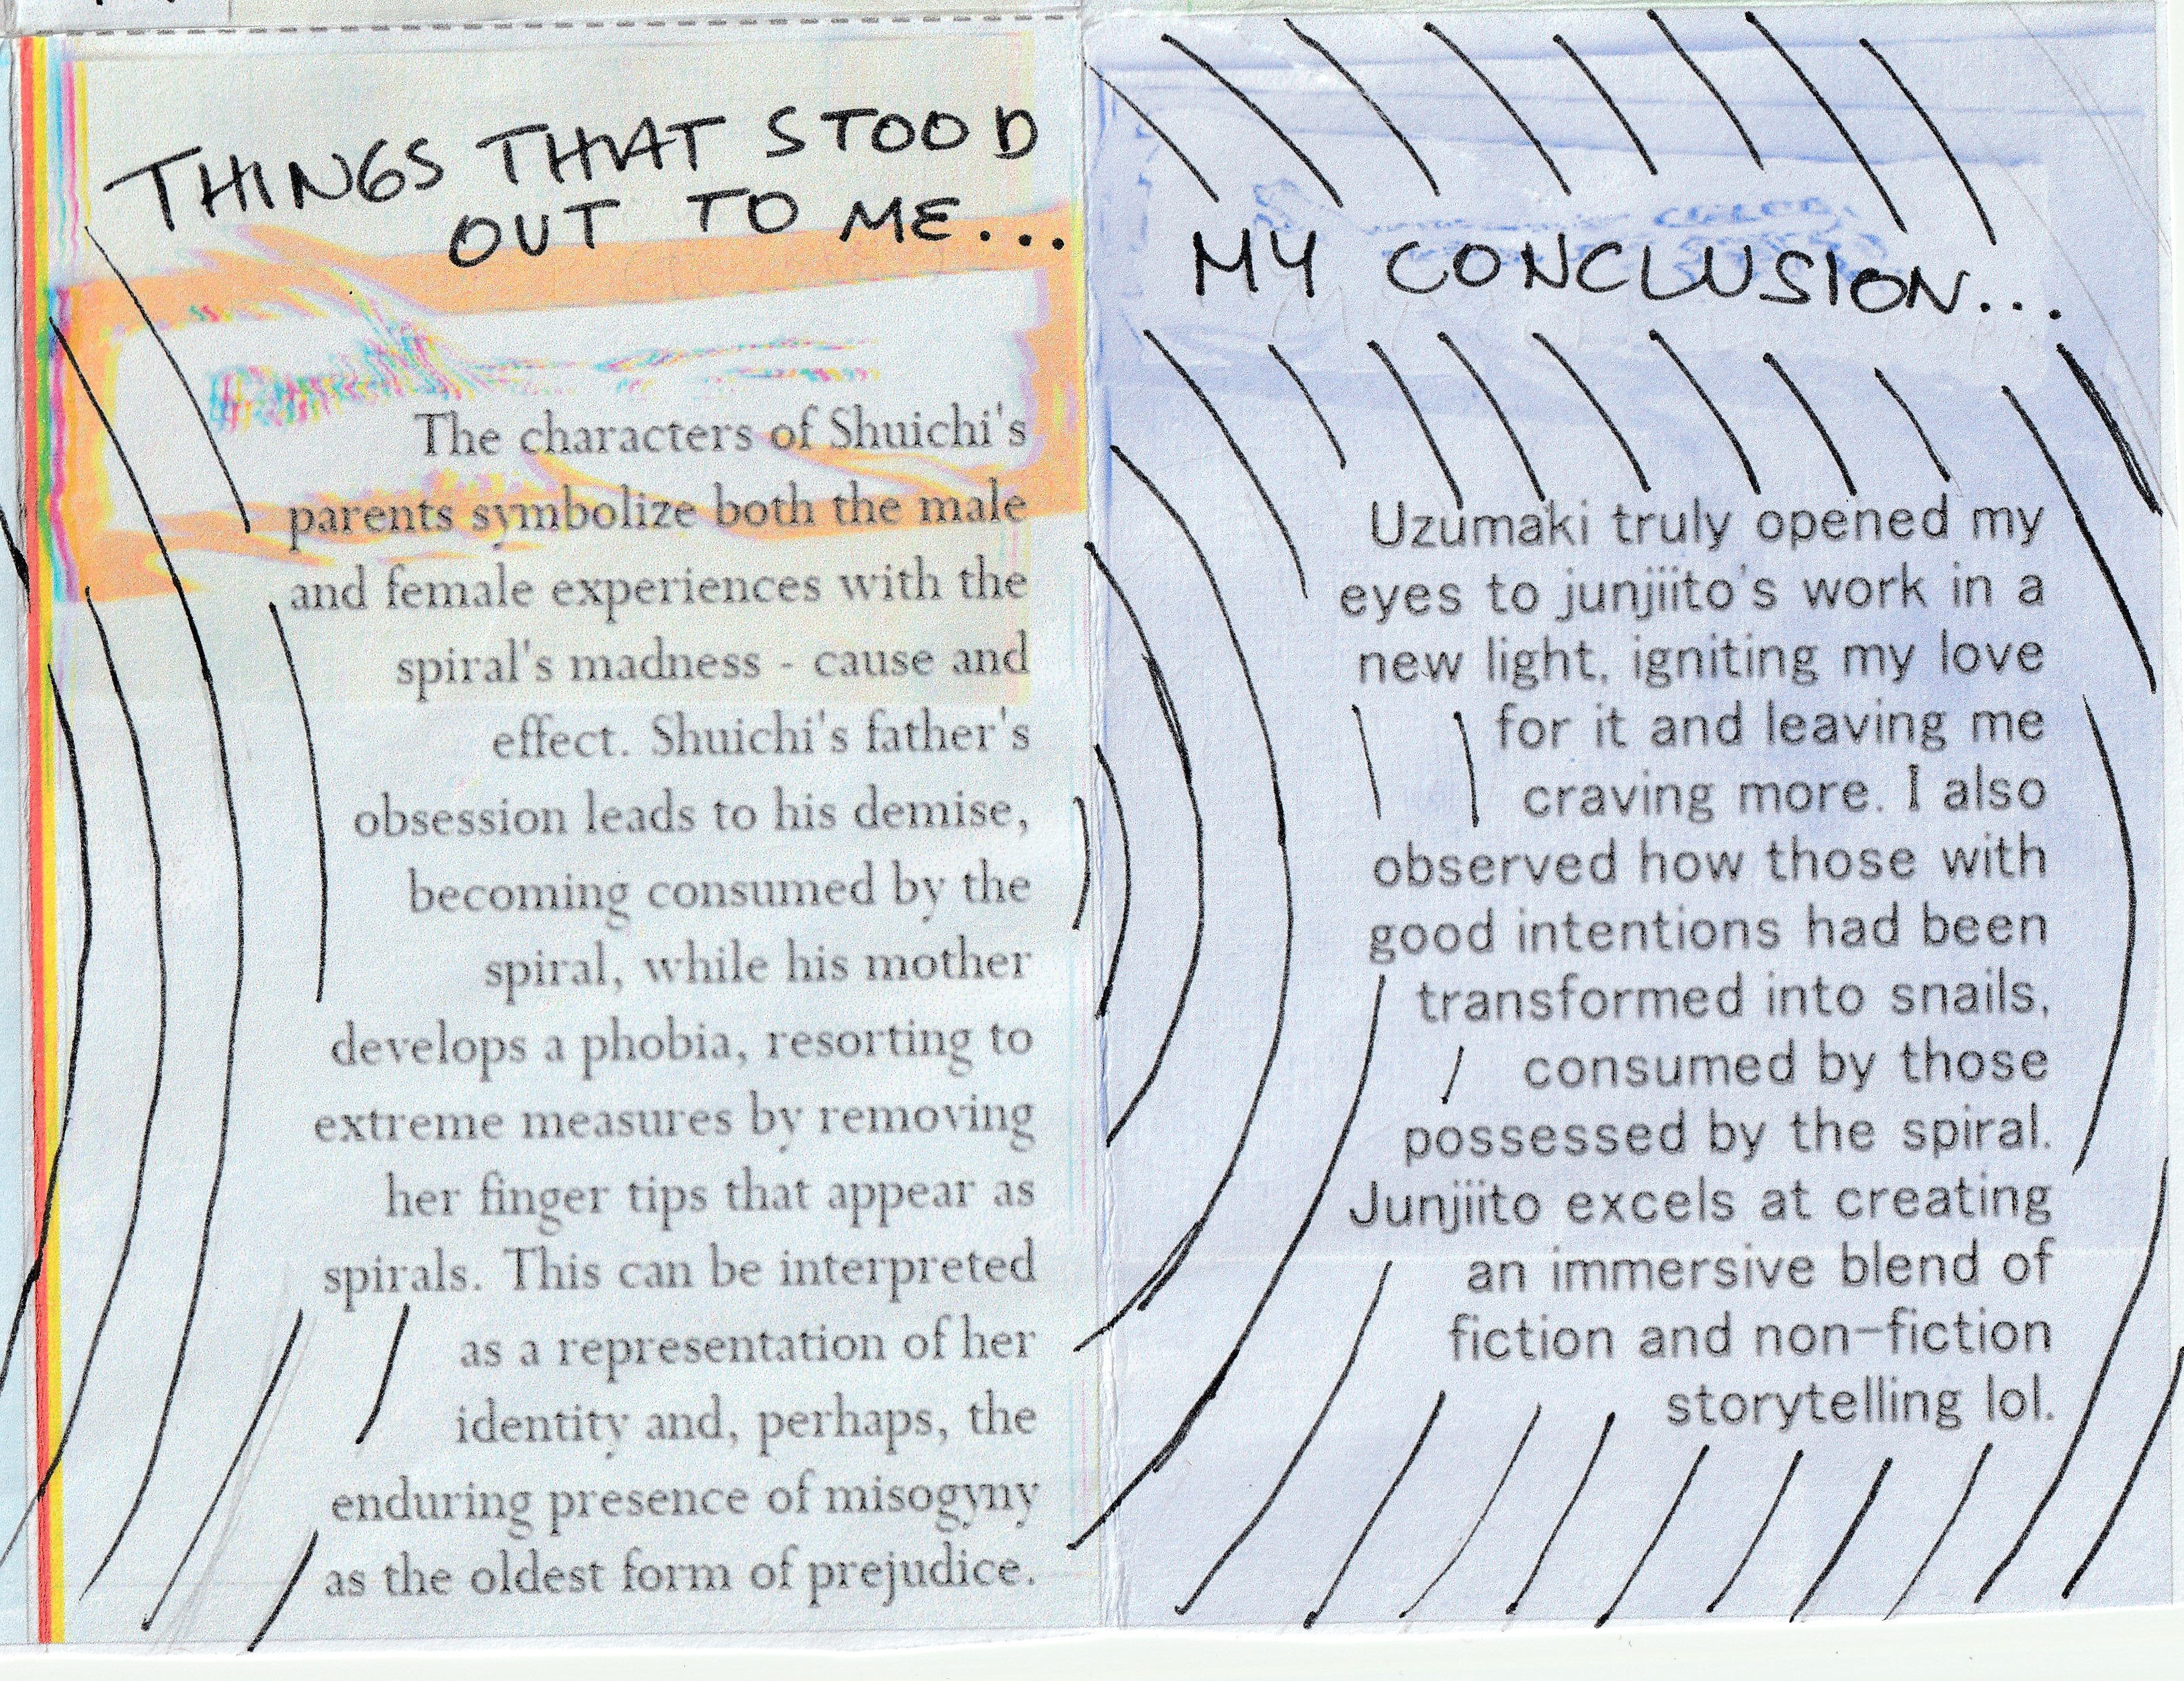 THINGS THAT STOOD
OUT TO ME...
The characters of Shuichi's
parents symbolize both the male
and female experiences with the
spiral's madness - cause and
effect. Shuichi's father's
obsession leads to his demise,
becoming consumed by the
spiral, while his mother
develops a phobia, resorting to
extreme measures by removing
her finger tips that appear as
spirals. This can be interpreted
as a representation of her
identity and, perhaps, the
enduring presence of misogyny
as the oldest form of prejudice.
MY CONCLUSION...
Uzumaki truly opened my
eyes to junjiito's work in a
new light, igniting my love
for it and leaving me
craving more. I also
observed how those with
good intentions had been
transformed into snails,
consumed by those
possessed by the spiral.
Junjiito excels at creating
an immersive blend of
fiction and non-fiction
storytelling lol.